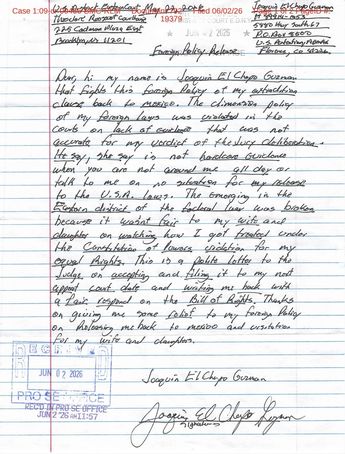 Case 1:09-
Filed 06/02/26
19379
U.S. District May 27, 2026
Theodore Roosevelt Courthouse
225 Cadman Plaza East
Brooklyn, NY 11201
Joaquin El Chapo Guzman
5880 Hwy South 67
P.O. Box 8500
Florence, CO
JUN 2 2026
Foreign Policy Release
Dear, hi my name is Joaquin El Chapo Guzman
that fights this foreign Policy of my extradition
clause back to mexico. The dimension policy
of my foreign laws was violated in the
courts on lack of evidence that was not
accurate for my verdict of the Jury deliberation.
He say, she say is not hardcore Guidence
when you are not around me all day or
talk to me on no situation for my release
to the U.S.A. laws. The emerging in the
Eastern district of the federal law was broken
because it wasnt fair to my wife and
daughter on watching how I got treated under
the Constitution of powers violation for my
equal Rights. This is a polite letter to the
Judge on accepting and filing it to my next
appeal court date and writing me back with
a fair respond on the Bill of Rights. Thanks
on giving me some relief to my foreign Policy
on Releasing me back to mexico and visitation
for my wife and daughters.
JUN 02 2026
PRO SE OFFICE
REC'D IN PRO SE OFFICE
JUN 2 '26 AM11:57
Joaquin El Chapo Guzman
Joaquin El Chapo Guzman
signature